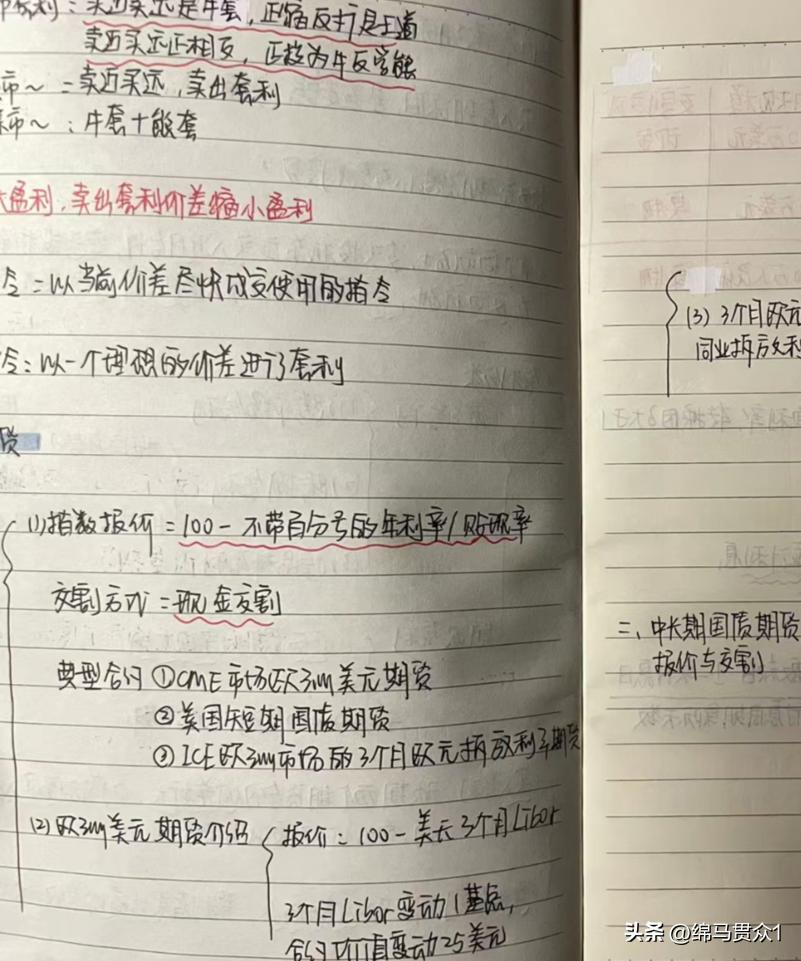 买近卖远是牛套,正缩反扩是王道
卖近买远正相反,正扩为牛反皆熊
市~:卖近买远,卖出套利
市~:牛套+熊套
盈利,卖出套利价差缩小盈利
令:以当前价差尽快成交使用的指令
令:以一个理想的价差进行套利
货
(1)指数报价:100-不带百分号的年利率/贴现率
交割方式:现金交割
典型合约 ①CME市场欧洲美元期货
②美国短期国债期货
③ICE欧洲市场的3个月欧元拆放利率期货
(2)欧洲美元期货介绍
报价:100-美元3个月Libor
3个月Libor变动1基点,
合约价值变动25美元
(3)3个月欧元
同业拆放利
三、中长期国债期货
报价与交割
头条 @绵马贯众1